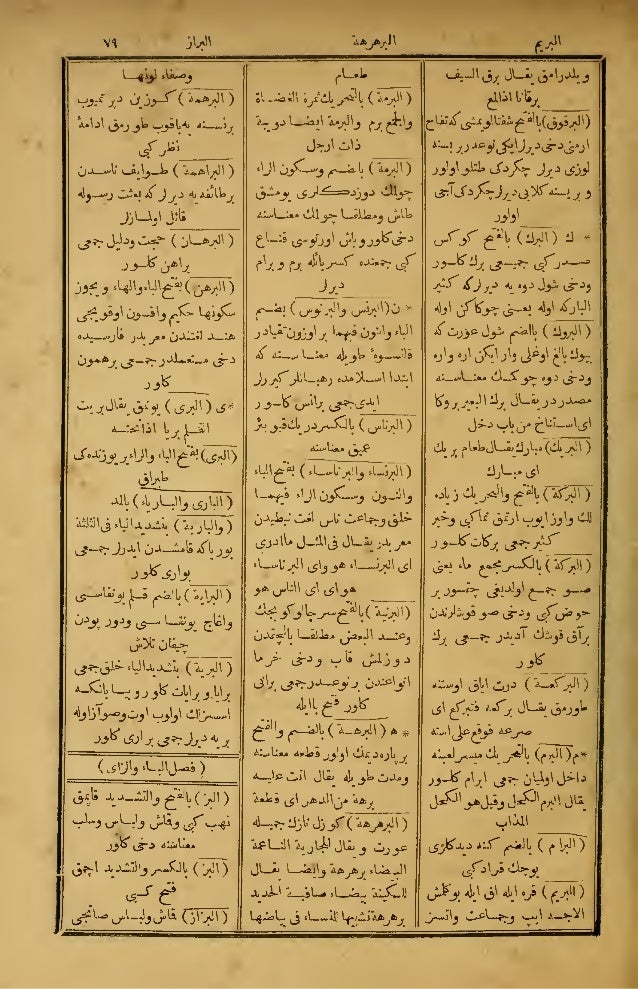 البريم
البرهرهة
البراز
٧٩
ويلدرامق يقال برق السيف
برقانا اذا لمع
(البرقوق) بالفتح شفتالو يمشى كه تفاح
ارمنى دخى ديرلر ايكى نوعدر بر بسنه
لوزى ديرلر چكردكى طتلو اولور
و بر بسنه كلابى ديرلر چكردكى آجى
اولور
* ك (البرك) بالفتح كوكس
صدر كبى جمعى برك كلور
ودخى شول دوه يه ديرلركه كثير
البراركه اوله يعنى چوكاكن اوله
(البروك) بالضم شول عورت كه
بيوك بالغ اوغلى وار ايكن اره واره
ودخى دوه چوكمك معناسنه
مصدردر يقال برك البعير بروكا
اى استناخ من باب دخل
(البريك) مبارك يقال طعام بريك
اى مبارك
(البركة) بالفتح والتحريك زياده
لك واوزايوب ارتمق نما كبى وخير
كثير جمعى بركات كلور
(البركة) بالكسر مجمع ماء يعنى
صو جمع اولديغى چقسور بر
حوض كبى ودخى صو قوشلرندن
برآق قوشك آديدر جمعى برك
كلور
(البركعة) درت اياق اوستنه
طورمق يقال بركعه فتبركع اى
صرعه فوقع على استه
* م (البرم) بالتحريك ميسر لعبنه
داخل اولميان جمعى ابرام كلور
يقال البرم الكحل وقيل هو الكحل
المذاب
(البرام) بالضم كنه ديدكلرى
بوجك قراد كبى
(البريم) قره ايله اق ايله بوكلمش
الاجه ايپ وجماعت واتسز
طعام
(البرمة) بالتحريك ثمرة العضاة
والجمع برم والبرمة ايضا دويبة
ذات ارجل
(البرمة) بالضم وسكون الراء
چولمك دوزدكلرى يومشق
طاش ومطلقا چولمك معناسنه
دخى كلور وباش اورتوسى قناع
كبى جمعنده كسر بائله برم و برام
ديرلر
* ن (البرنس والبرنوس) بضم
الباء والنون فيهما بر اوزون تقيادر
قلنسوة طويله معناسنه كه
ابتدا اسلامده رهبانلر كيرلر
ايدى جمعى برانس كلور
(البرناس) بالكسر دريك قيو بئر
عميق معناسنه
(البرنساء والبرناساء) بفتح الباء
والنون وسكون الراء فيهما
خلق وجماعت ناس لغت نبطيدن
معربدر يقال فى المثل ما ادرى
اى البرنساء هو واى البرناساء
هو اى اى الناس هو
(البرنية) بالفتح سرچا وكوبجك
وعند البعض مطلقا بالچقدن
دوزلمش قاب ودخى خرما
انواعندن بر نوعدر جمعى برانى
كلور فتح بايله
* ه (البرهة) بالضم والفتح
بر پاره ديمك اولور قطعه معناسنه
ومدت طويله يقال اتت عليه
برهة من الدهر اى قطعة
(البرهرهة) كوزل نازك جميله
عورت و يقال الجارية الناعمة
البيضاء برهرهة وايضا يقال
للسكينة بيضاء صافية الحديد
برهرهة تشبيها للنساء فى بياضها
وصفاء لونها
(البرهمة) كوزين دير تميوب
برنسنه يه باقوب طورمق ادامة
نظر كبى
(البراهمة) طوايف ناسدن
برطائفه يه ديرلر كه بعثت رسوله
قائل اولمازلر
(البرهان) حجت ودليل جمعى
براهن كلور
(البرهن) بفتح الباء والهاء ويجوز
سكونها حكيم وافسون اوقويجى
هند لغتندن معربدر فارسيده
دخى مستعملدر جمعى برهمون
كلور
* ى (البرى) يونمق يقال بريت
القلم بريا اذا نحته
(البرى) بفتح الباء والراء ير يوزندهكى
طپراق
(البارى والبارياء) بالمد
(والبارية) بتشديد الياء فى الثلثة
بورياكه قامشدن ايدرلر جمعى
بوارى كلور
(البراية) بالضم قلم يونقاسى
واغاج يونقاسى ودور يودن
چيقان تلاش
(البرية) بتشديد الياء خلق جمعى
برايا وبرايات كلور وبيابانكه
اسسزلك اولوب اوت وصو آز اوله
بريه ديرلر جمعى برارى كلور
(فصل الباء والزاى)
(البز) بالفتح والتشديد قاپمق
نهب كبى وقاش ولباس وسلب
معناسنه دخى كلور
(البز) بالكسر والتشديد اچمق
فتح كبى
(البزاز) قاش ولباس صاتيجى